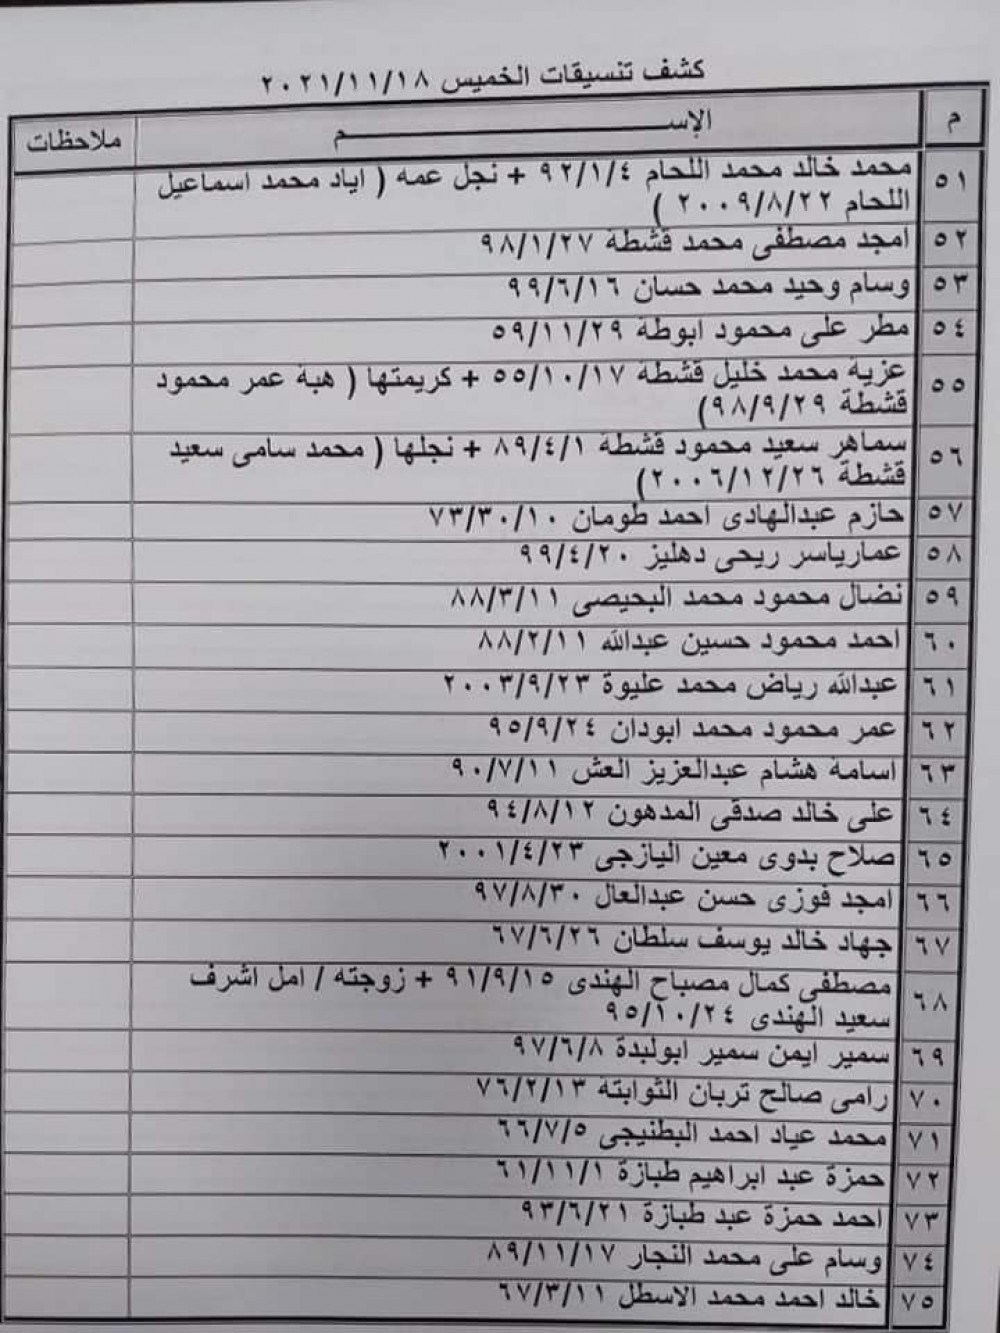 كشف تنسيقات الخميس ٢٠٢١/١١/١٨
م الإســـــــــــم ملاحظات
٥١ محمد خالد محمد اللحام ٩٢/١/٤ + نجل عمه ( اياد محمد اسماعيل
اللحام ٢٠٠٩/٨/٢٢ )
٥٢ امجد مصطفى محمد قشطة ٩٨/١/٢٧
٥٣ وسام وحيد محمد حسان ٩٩/٦/١٦
٥٤ مطر على محمود ابوطة ٥٩/١١/٢٩
٥٥ عزية محمد خليل قشطة ٥٥/١٠/١٧ + كريمتها ( هبة عمر محمود
قشطة ٩٨/٩/٢٩)
٥٦ سماهر سعيد محمود قشطة ٨٩/٤/١ + نجلها ( محمد سامى سعيد
قشطة ٢٠٠٦/١٢/٢٦)
٥٧ حازم عبدالهادى احمد طومان ٧٣/٣٠/١٠
٥٨ عمارياسر ريحى دهليز ٩٩/٤/٢٠
٥٩ نضال محمود محمد البحيصى ٨٨/٣/١١
٦٠ احمد محمود حسين عبدالله ٨٨/٢/١١
٦١ عبدالله رياض محمد عليوة ٢٠٠٣/٩/٢٣
٦٢ عمر محمود محمد ابودان ٩٥/٩/٢٤
٦٣ اسامة هشام عبدالعزيز العش ٩٠/٧/١١
٦٤ على خالد صدقى المدهون ٩٤/٨/١٢
٦٥ صلاح بدوى معين اليازجى ٢٠٠١/٤/٢٣
٦٦ امجد فوزى حسن عبدالعال ٩٧/٨/٣٠
٦٧ جهاد خالد يوسف سلطان ٦٧/٦/٢٦
٦٨ مصطفى كمال مصباح الهندى ٩١/٩/١٥ + زوجته / امل اشرف
سعيد الهندى ٩٥/١٠/٢٤
٦٩ سمير ايمن سمير ابولبدة ٩٧/٦/٨
٧٠ رامى صالح تربان الثوابتة ٧٦/٢/١٣
٧١ محمد عياد احمد البطنيجى ٦٦/٧/٥
٧٢ حمزة عبد ابراهيم طبازة ٦١/١١/١
٧٣ احمد حمزة عبد طبازة ٩٣/٦/٢١
٧٤ وسام على محمد النجار ٨٩/١١/١٧
٧٥ خالد احمد محمد الاسطل ٦٧/٣/١١